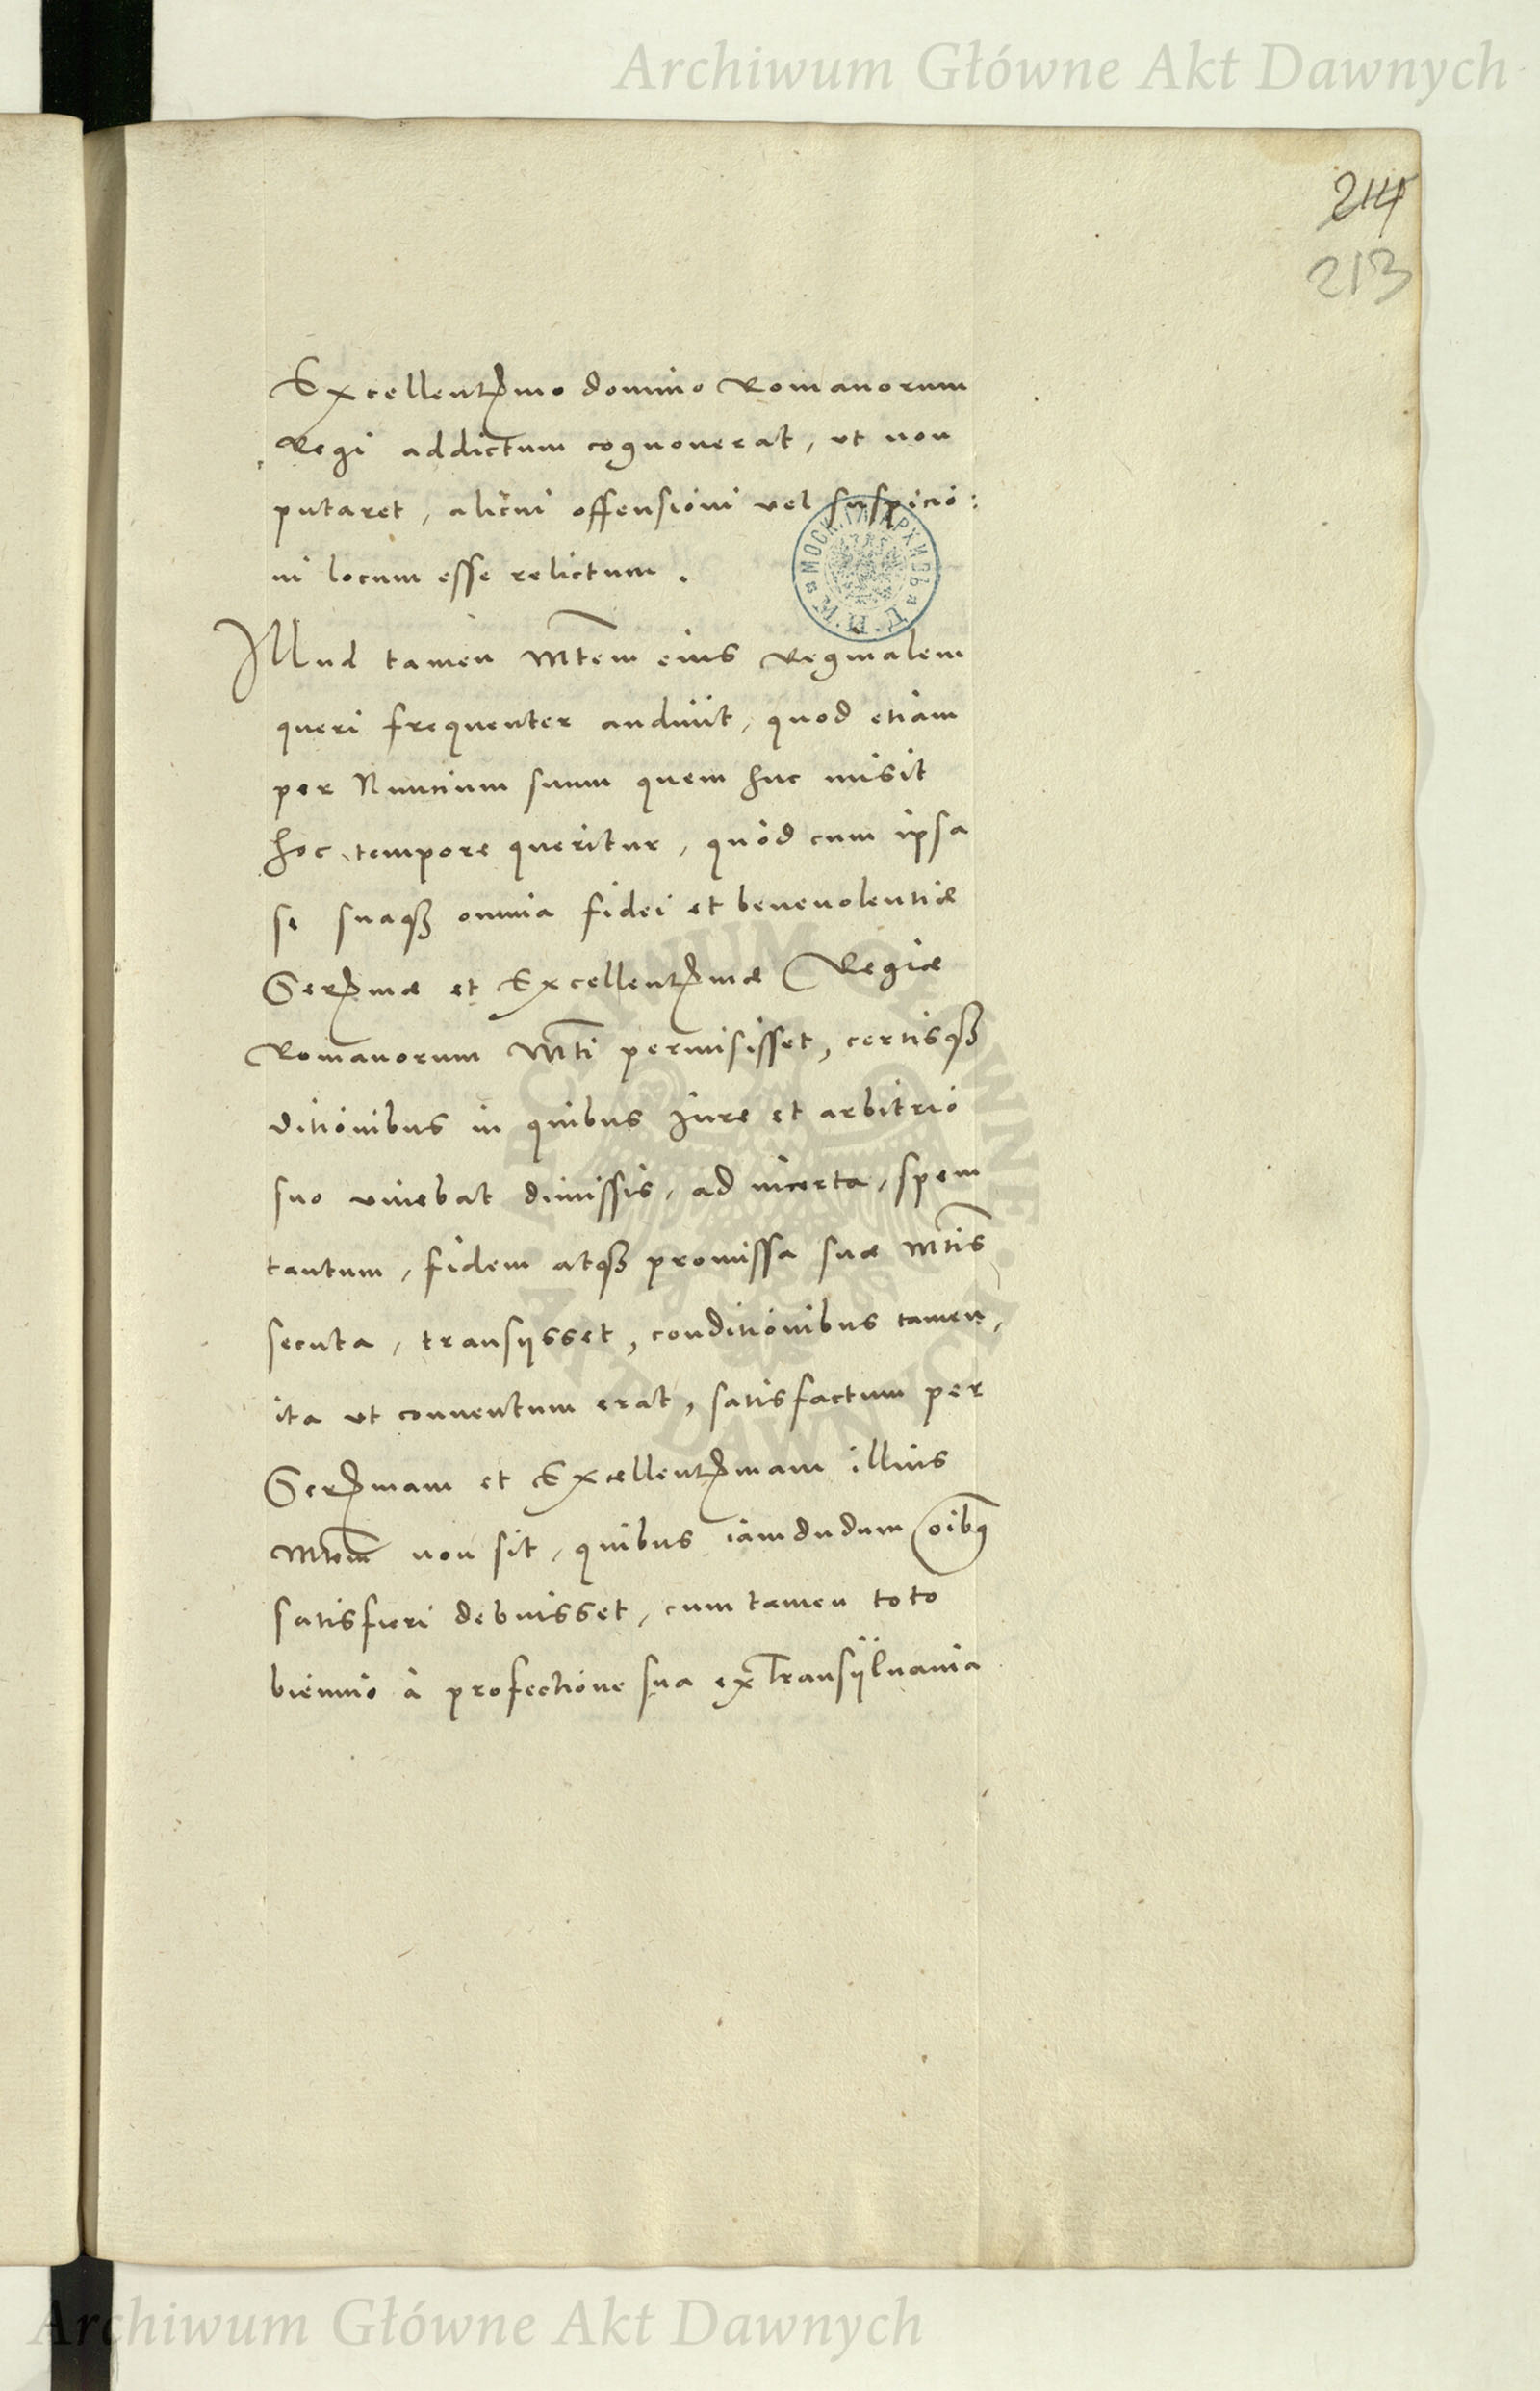 Archiwum Główne Akt Dawnych
214
213
Excellentmo domino Romanorum
Regi addictum cognouerat, ut non
putaret, alicui offensioni vel suspicio:
ni locum esse relictum.
Illud tamen Mtem eius Reginalem
queri frequenter audiuit, quod etiam
per Nuncium suum quem huc misit
hoc tempore queritur, quòd cum ipsa
se suaq omnia fidei et beneuolentiæ
Sermæ et Excellentmæ Regiæ
Romanorum Mti permisisset, certisq
ditionibus in quibus jure et arbitrio
suo viuebat dimissis, ad incerta, spem
tantum, fidem atq promissa suæ Mtis
secuta, transijsset, conditionibus tamen,
ita ut conuentum erat, satisfactum per
Sermam et Excellentmam illius
Mtem non sit, quibus iamdudum oibq
satisfieri debuisset, cum tamen toto
biennio à profectione sua ex Transÿluania
МОСК. ГЛ. АРХИВЪ М. И. Д.
ARCHIWUM GŁÓWNE AKT DAWNYCH
Archiwum Główne Akt Dawnych